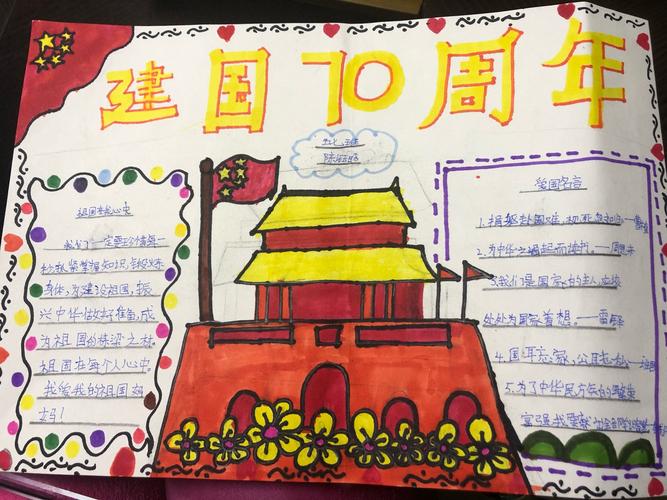 建国70周年
祖国在我心中
我们一定要珍惜每一
秒抓紧掌握知识,积极炼
身体,为建设祖国,振
兴中华做好准备,成
为祖国的栋梁之材。
祖国在每个人心中。
我爱我的祖国妈
妈!
爱国名言
1.捐躯赴国难,视死忽如归——曹植
2.为中华之崛起而读书,——周恩来
3.我们是国家的主人,应该
处处为国家着想。——雷锋
4.国耳忘家,公耳忘私,——班固
5.为了中华民族的
富强,我要献